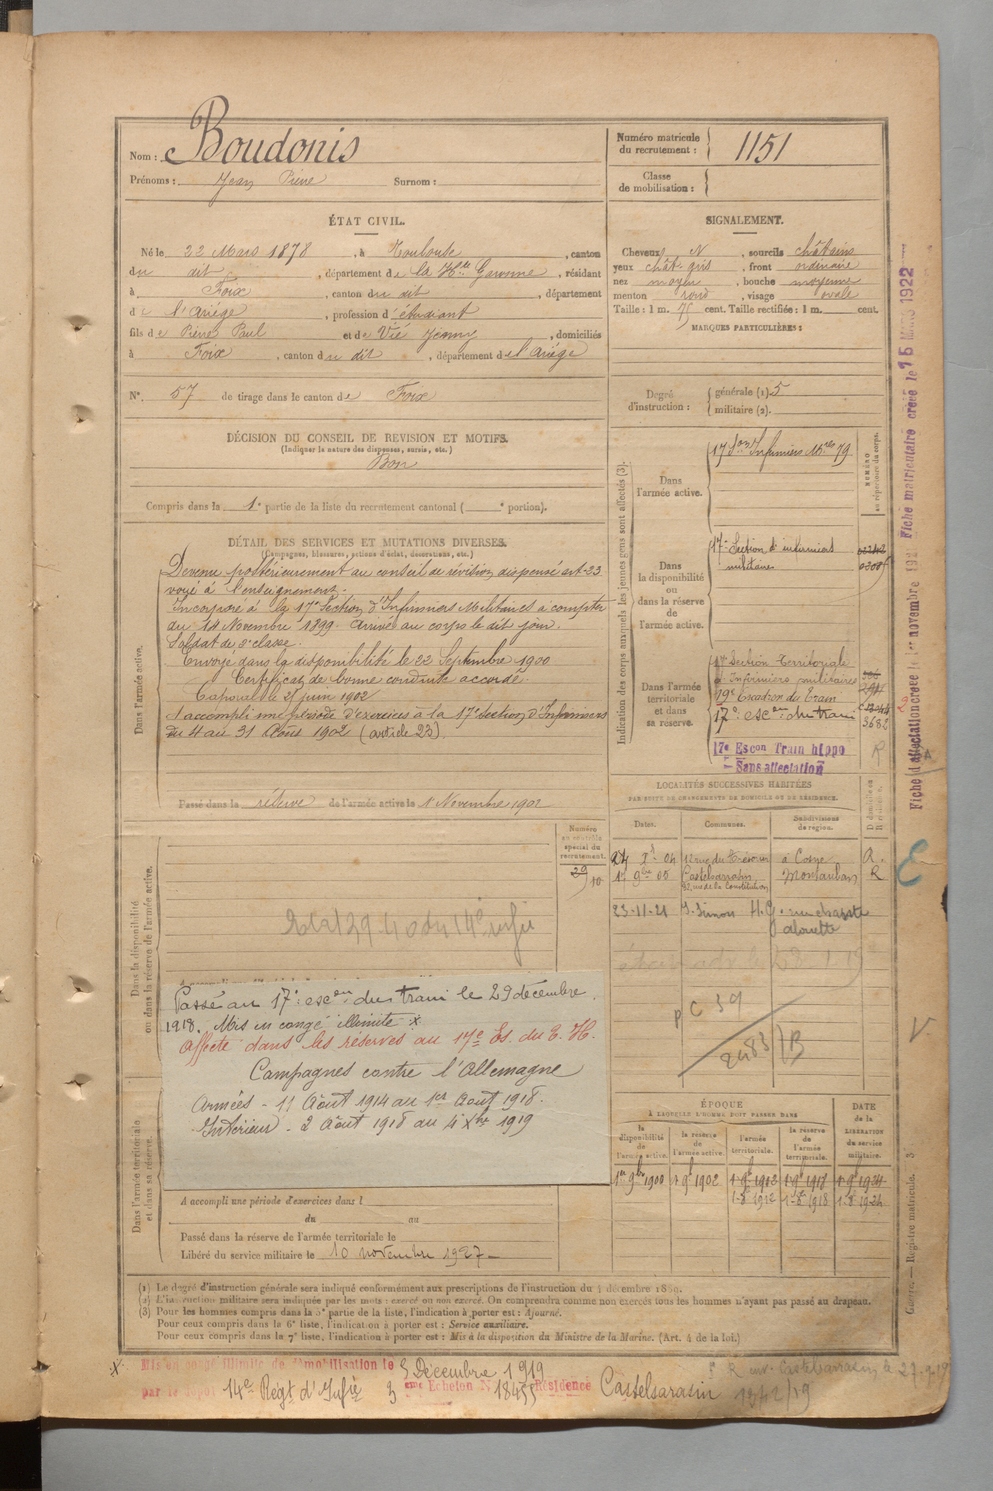 Nom : Boudonis
Prénoms : Jean Pierre Surnom :
Numéro matricule du recrutement : 1151
Classe de mobilisation :
ÉTAT CIVIL.
Né le 22 Mars 1878, à Toulouse, canton
du dit, département de la Hte Garonne, résidant
à Foix, canton du dit, département
de l'Ariège, profession d'étudiant
fils de Pierre Paul et de Vié Jeanne, domiciliés
à Foix, canton du dit, département de l'Ariège
N° 57 de tirage dans le canton de Foix
SIGNALEMENT.
Cheveux N, sourcils châtains
yeux chât. gris, front ordinaire
nez moyen, bouche moyenne
menton rond, visage ovale
Taille : 1 m. 75 cent. Taille rectifiée : 1 m. cent.
MARQUES PARTICULIÈRES :
Degré d'instruction : générale (1) 5
militaire (2).
DÉCISION DU CONSEIL DE REVISION ET MOTIFS.
(Indiquer la nature des dispenses, sursis, etc.)
Bon
Compris dans la 1e partie de la liste du recrutement cantonal ( e portion).
DÉTAIL DES SERVICES ET MUTATIONS DIVERSES.
(Campagnes, blessures, actions d'éclat, décorations, etc.)
Dans l'armée active.
Devenu postérieurement au conseil de révision dispensé art. 23
voué à l'enseignement.
Incorporé à la 17e Section d'Infirmiers Militaires à compter
du 14 Novembre 1899. Arrivé au corps le dit jour.
Soldat de 2e classe.
Envoyé dans la disponibilité le 22 Septembre 1900
Certificat de bonne conduite accordé.
Caporal le 21 juin 1902
A accompli une période d'exercices à la 17e Section d'Infirmiers
du 4 au 31 Août 1902 (article 23).
Passé dans la réserve de l'armée active le 1 Novembre 1902
Indication des corps auxquels les jeunes gens sont affectés (3).
NUMÉRO au répertoire du corps.
Dans l'armée active.
17 Son Infirmiers Mres 79
Dans la disponibilité ou dans la réserve de l'armée active.
17e Section d'infirmiers
militaires
Dans l'armée territoriale et dans sa réserve.
17e Section Territoriale
d'Infirmiers militaires
19e Escadron du Train
17e escon du train 3682
17e Escon Train hippo R
Sans affectation
LOCALITÉS SUCCESSIVES HABITÉES
PAR SUITE DE CHANGEMENTS DE DOMICILE OU DE RÉSIDENCE.
Dates. Communes. Subdivisions de région. D domicile ou R résidence.
à Cosne
Castelsarrasin Montauban R
12 rue de la Constitution
23-11-21 St Simon H.G.
P C 39
2483 B
Dans la disponibilité ou dans la réserve de l'armée active.
Numéro au contrôle spécial du recrutement.
29/10
Passé au 17e escon du train le 29 décembre
1918. Mis en congé illimité x
Affecté dans les réserves au 17e Es. du T. H.
Campagnes contre l'Allemagne
Armées - 11 Août 1914 au 1er Août 1918.
Intérieur - 2 Août 1918 au 4 Xbre 1919
Dans l'armée territoriale et dans sa réserve.
A accompli une période d'exercices dans l
du au
Passé dans la réserve de l'armée territoriale le
Libéré du service militaire le 10 novembre 1927
ÉPOQUE
À LAQUELLE L'HOMME DOIT PASSER DANS
la disponibilité de l'armée active. la réserve de l'armée active. l'armée territoriale. la réserve de l'armée territoriale.
DATE de la LIBÉRATION du service militaire.
1er 9bre 1900 1 9bre 1902 1 9bre 1912 1 9bre 1918 1 9bre 1924
1-8 1912 1-8 1918 1-8 1924
(1) Le degré d'instruction générale sera indiqué conformément aux prescriptions de l'instruction du 4 décembre 1889.
(2) L'instruction militaire sera indiquée par les mots : exercé ou non exercé. On comprendra comme non exercés tous les hommes n'ayant pas passé au drapeau.
(3) Pour les hommes compris dans la 5e partie de la liste, l'indication à porter est : Ajourné.
Pour ceux compris dans la 6e liste, l'indication à porter est : Service auxiliaire.
Pour ceux compris dans la 7e liste, l'indication à porter est : Mis à la disposition du Ministre de la Marine. (Art. 4 de la loi.)
X Mis en congé illimité de démobilisation le 5 Décembre 1919
par le dépôt 14e Régt d'Infie 3eme Echelon N° 18455 Résidence Castelsarasin
Fiche d'affectation créée le 1er novembre 192 Fiche matriculaire créée le 15 MARS 1922
Guerre. — Registre matricule. 3
E
V